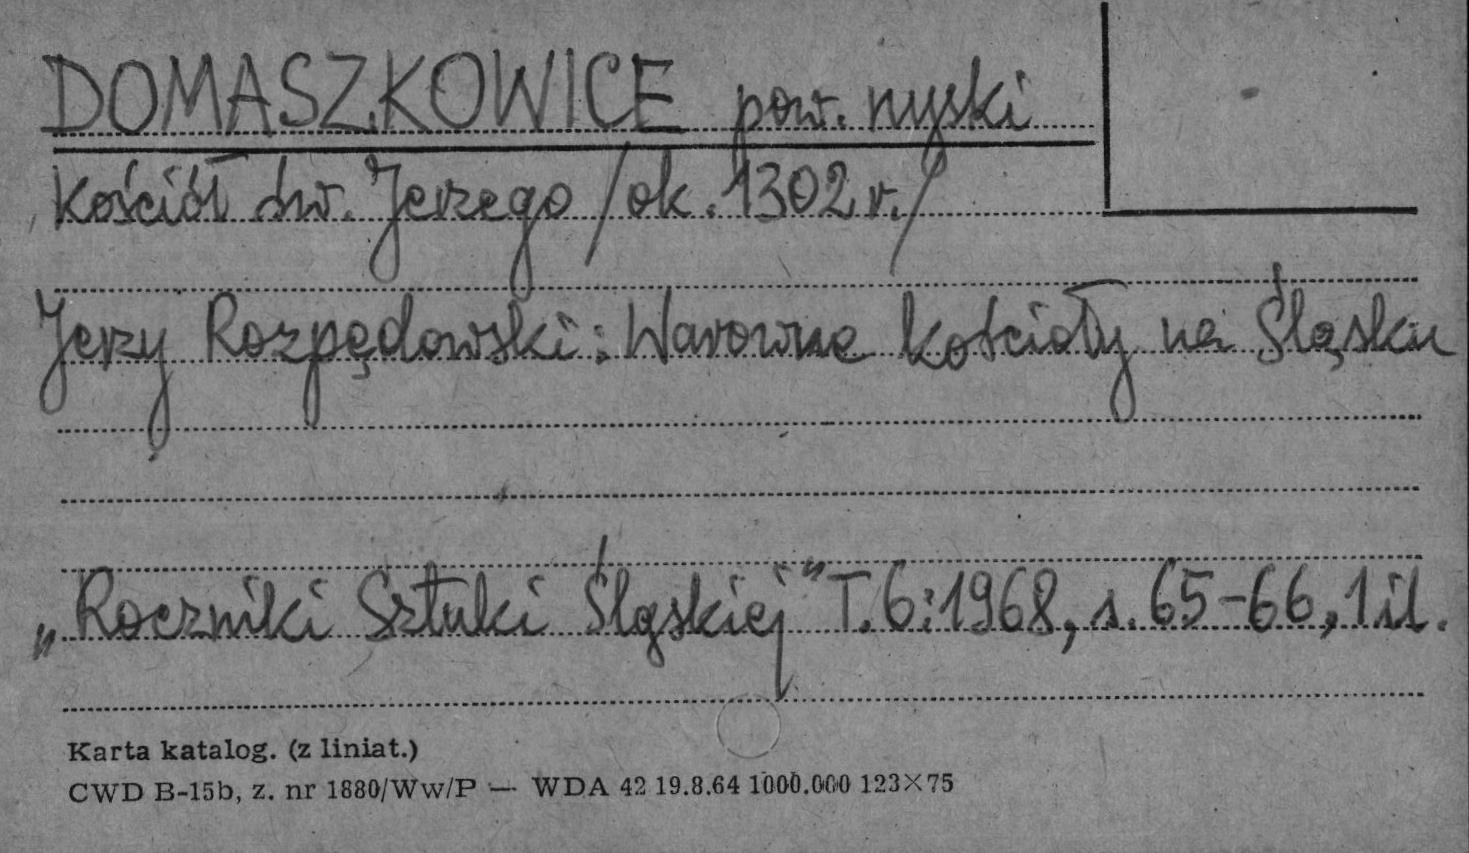 DOMASZKOWICE pow. nyski
Kościół św. Jerzego /ok. 1302 r./
Jerzy Rozpędowski: Warowne kościoły na Śląsku
„Roczniki Sztuki Śląskiej" T.6:1968, s. 65-66, 1 il.
Karta katalog. (z liniat.)
CWD B-15b, z. nr 1880/Ww/P — WDA 42 19.8.64 1000.000 123×75